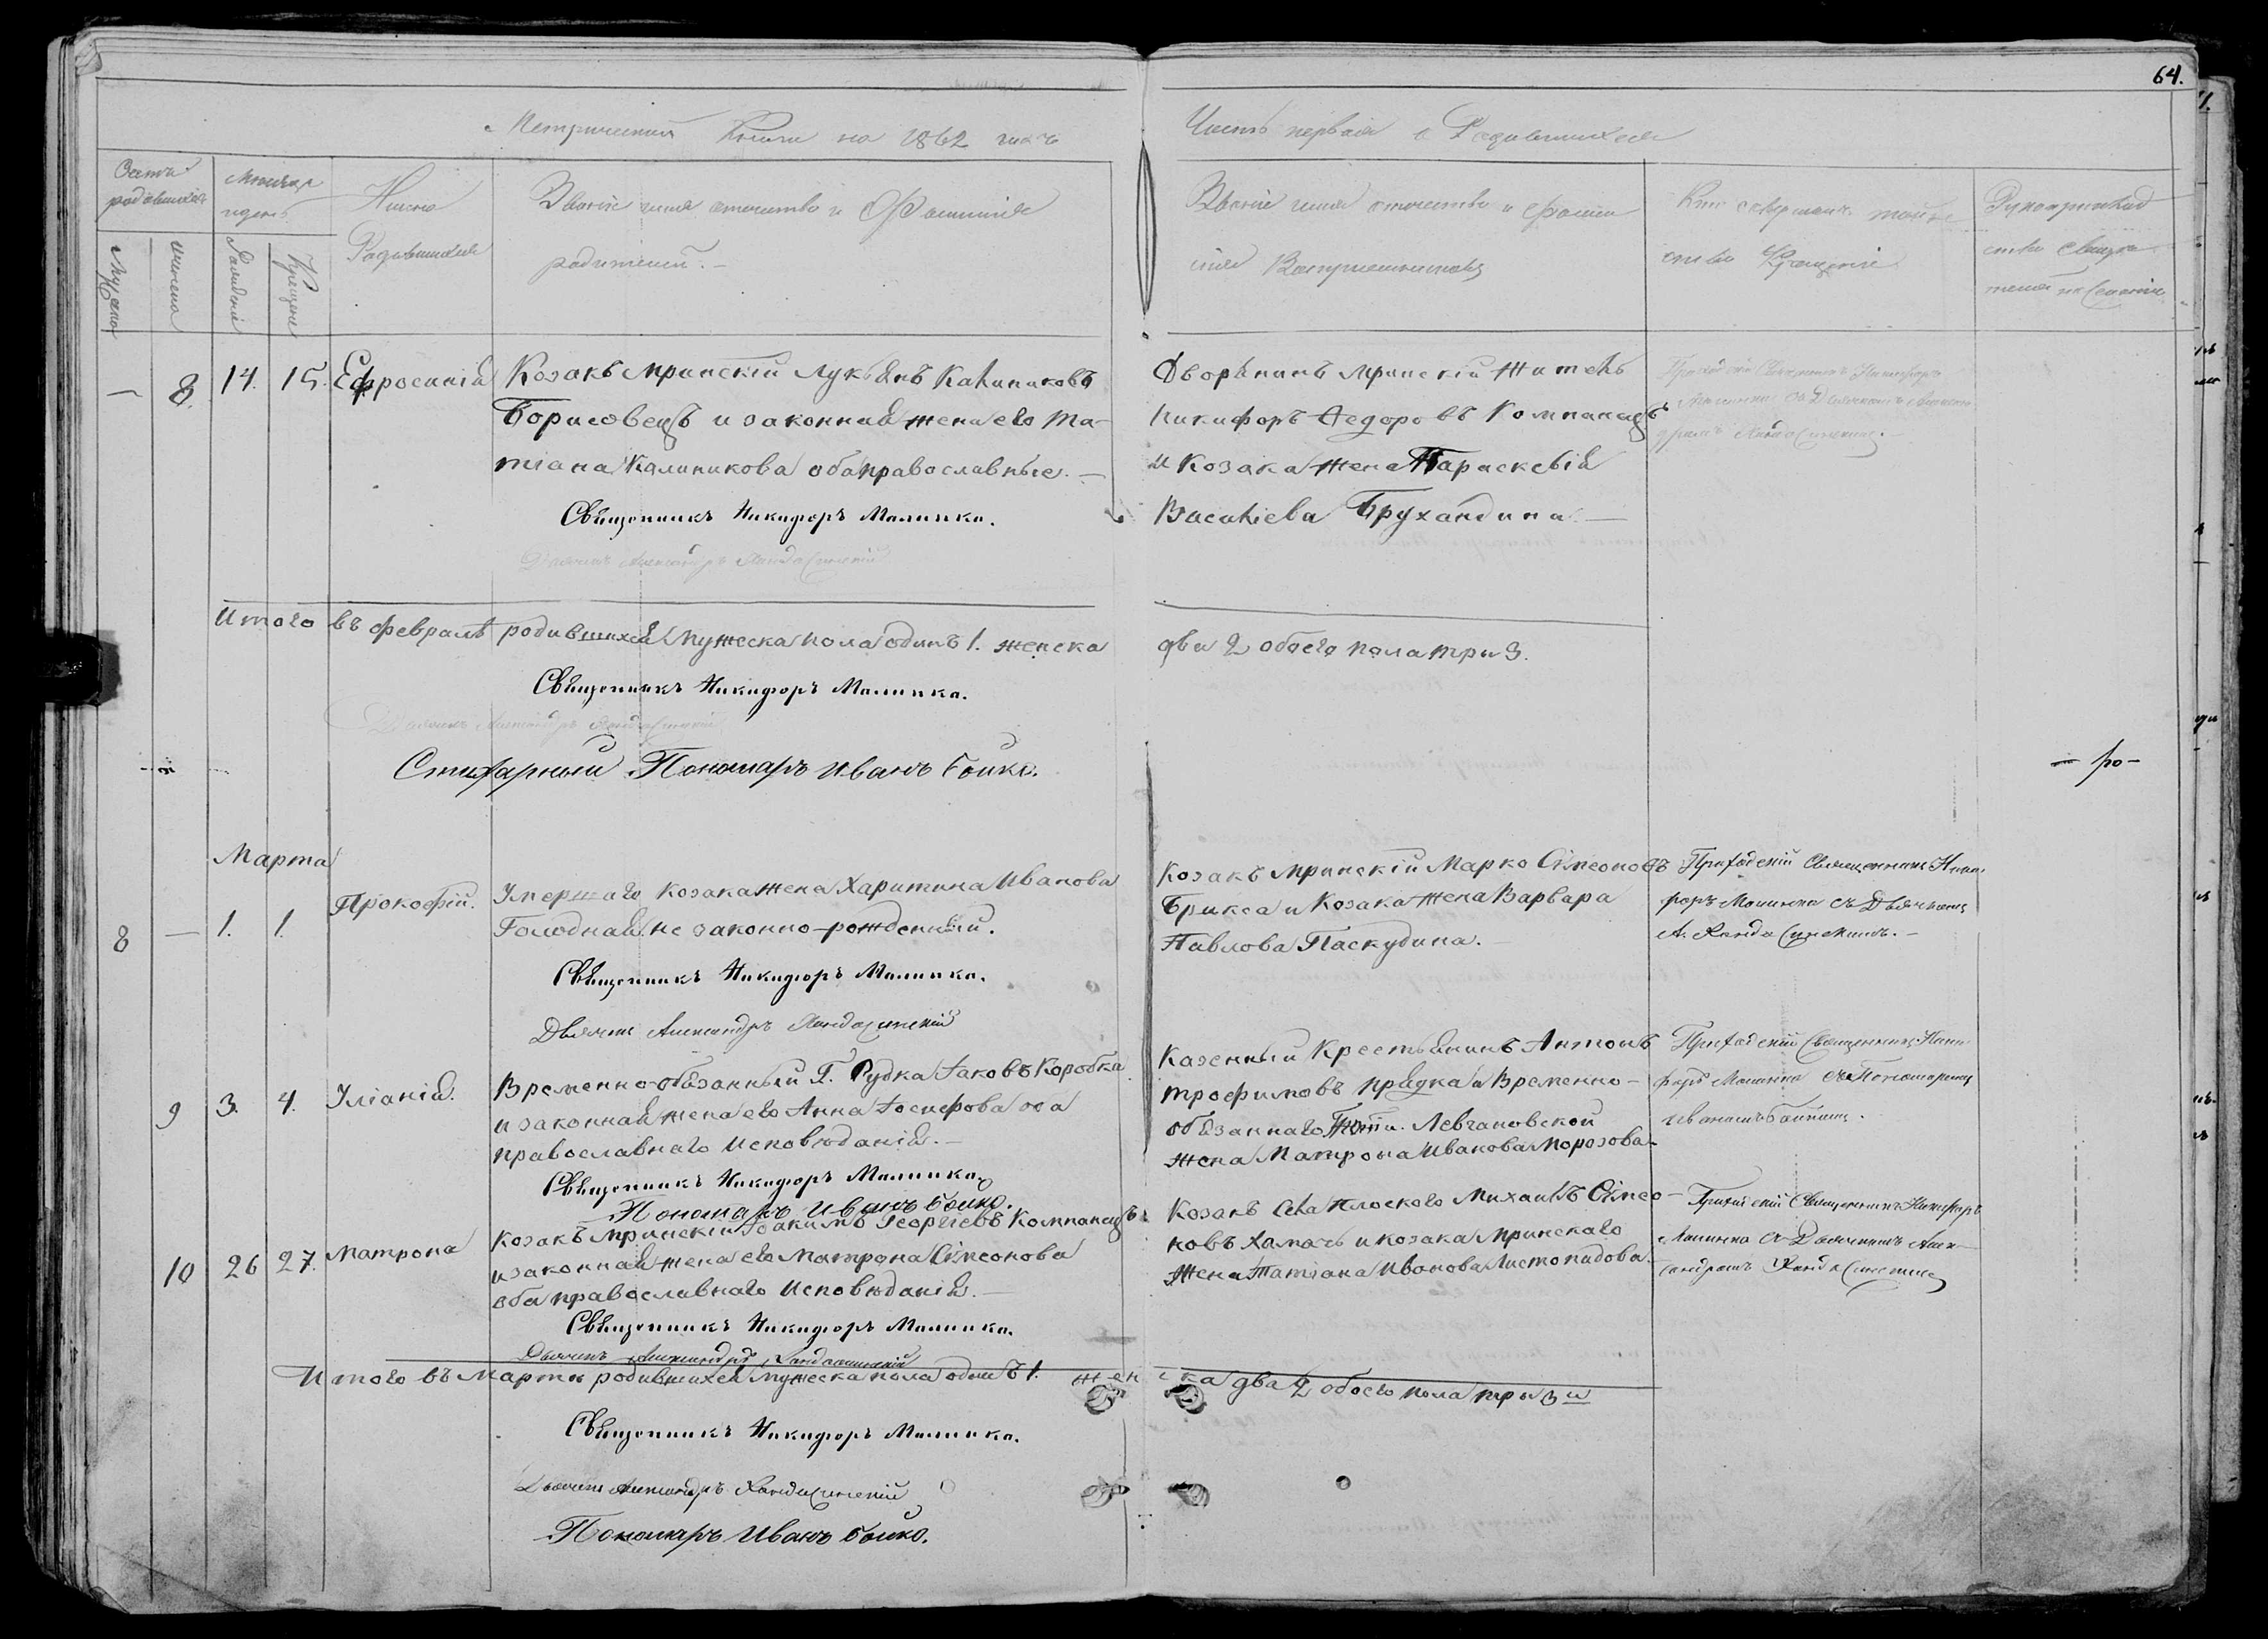 64.
Метрической Книги на 1862 годъ
Часть первая о Родившихся
Счетъ родившихся
Мужеска
Женска
Месяцъ и день
Рожденія
Крещенія
Имена Родившихся
Званіе имя отчество и Фамилія
родителей. –
Званіе имя отчество и фами
лія Воспріемниковъ
Кто совершалъ таин
ство Крещенія
Рукоприклад
ство свидѣ
телей
– 8. 14. 15. Ефросинія
Козакъ мринскій Лукьянъ Калиниковъ
Борисовецъ и законная жена его Та-
тіана Калиникова оба православные. –
Священникъ Никифоръ Малинка.
Дьячокъ Александръ
Дворянинъ мринскій житель
Никифоръ Федоровъ Компанецъ
и Козака жена Параскевія
Василіева Брухандина –
Приходскій Священникъ Никифоръ
Малинка съ Дьячкомъ Алексан
дромъ
Итого въ февралѣ родившихся мужеска пола одинъ 1. женска
два 2 обоего пола три 3.
Священникъ Никифоръ Малинка.
Дьячокъ Александръ
Стихарный Пономарь Иванъ Бойко.
– ро –
Марта
8 – 1. 1. Прокофій.
Умершаго козака жена Харитина Иванова
Голодная не законно-рожденный.
Священникъ Никифоръ Малинка.
Дьячокъ Александръ
Козакъ мринскій Марко Симеоновъ
Брикса и Козака жена Варвара
Павлова Паскудина. –
Приходскій Священникъ Ники
форъ Малинка съ Дьячкомъ
А.
9 3. 4. Уліанія.
Временно-обязанный Г. Рудка Іаковъ Коробка
и законная жена его Анна Іосифова оба
православнаго исповѣданія. –
Священникъ Никифоръ Малинка.
Пономарь Иванъ Бойко.
Казенный Крестьянинъ Антонъ
Трофимовъ Прядка и Временно-
обязаннаго Левчановской
жена Матрона Иванова Морозова
Приходскій Священникъ Ники
форъ Малинка съ Пономаремъ
Иваномъ Бойкомъ.
10 26 27. Матрона
Козакъ мринскій Іоакимъ Георгіевъ Компанецъ
и законная жена его Матрона Симеонова
оба православнаго исповѣданія. –
Священникъ Никифоръ Малинка.
Дьячокъ Александръ
Козакъ села Плоскаго Михаилъ Симео-
новъ Хамачъ и козака мринскаго
жена Татіана Иванова Листопадова.
Приходскій Священникъ Никифоръ
Малинка съ Дьячкомъ Алек
сандромъ
Итого въ Мартѣ родившихся мужеска пола одинъ 1. женска два 2 обоего пола три 3
Священникъ Никифоръ Малинка.
Дьячокъ Александръ
Пономарь Иванъ Бойко.